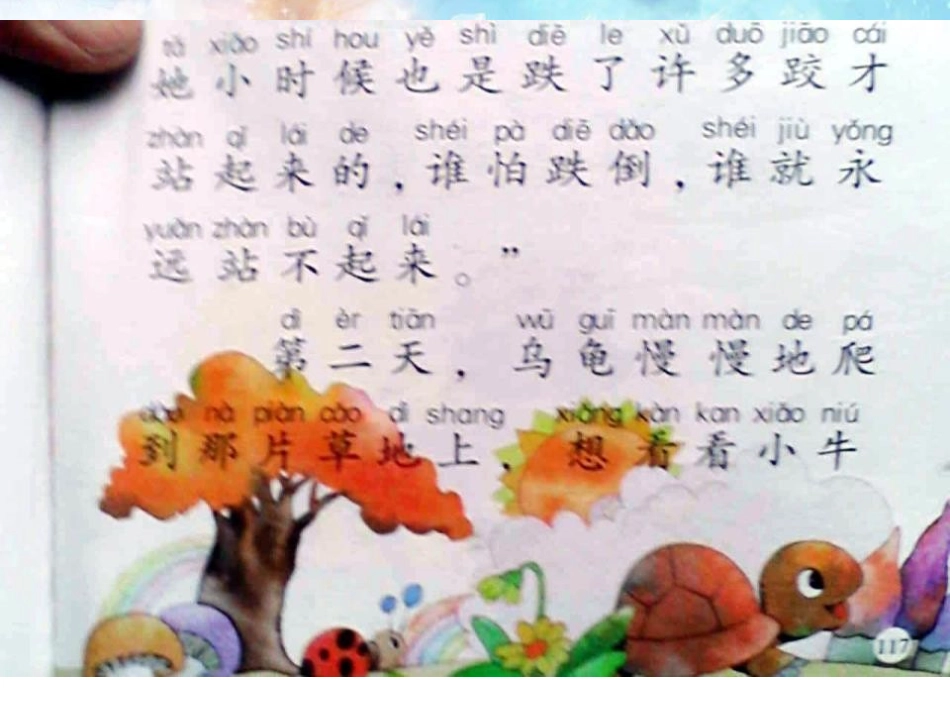 tā xiǎo shí hou yě shì diē le xǔ duō jiāo cái
她小时候也是跌了许多跤才
zhàn qǐ lái de shéi pà diē dǎo shéi jiù yǒng
站起来的，谁怕跌倒，谁就永
yuǎn zhàn bù qǐ lái
远站不起来。”
dì èr tiān wū guī màn màn de pá
第二天，乌龟慢慢地爬
dào nà piàn cǎo dì shang xiǎng kàn kan xiǎo niú
到那片草地上，想看看小牛
117